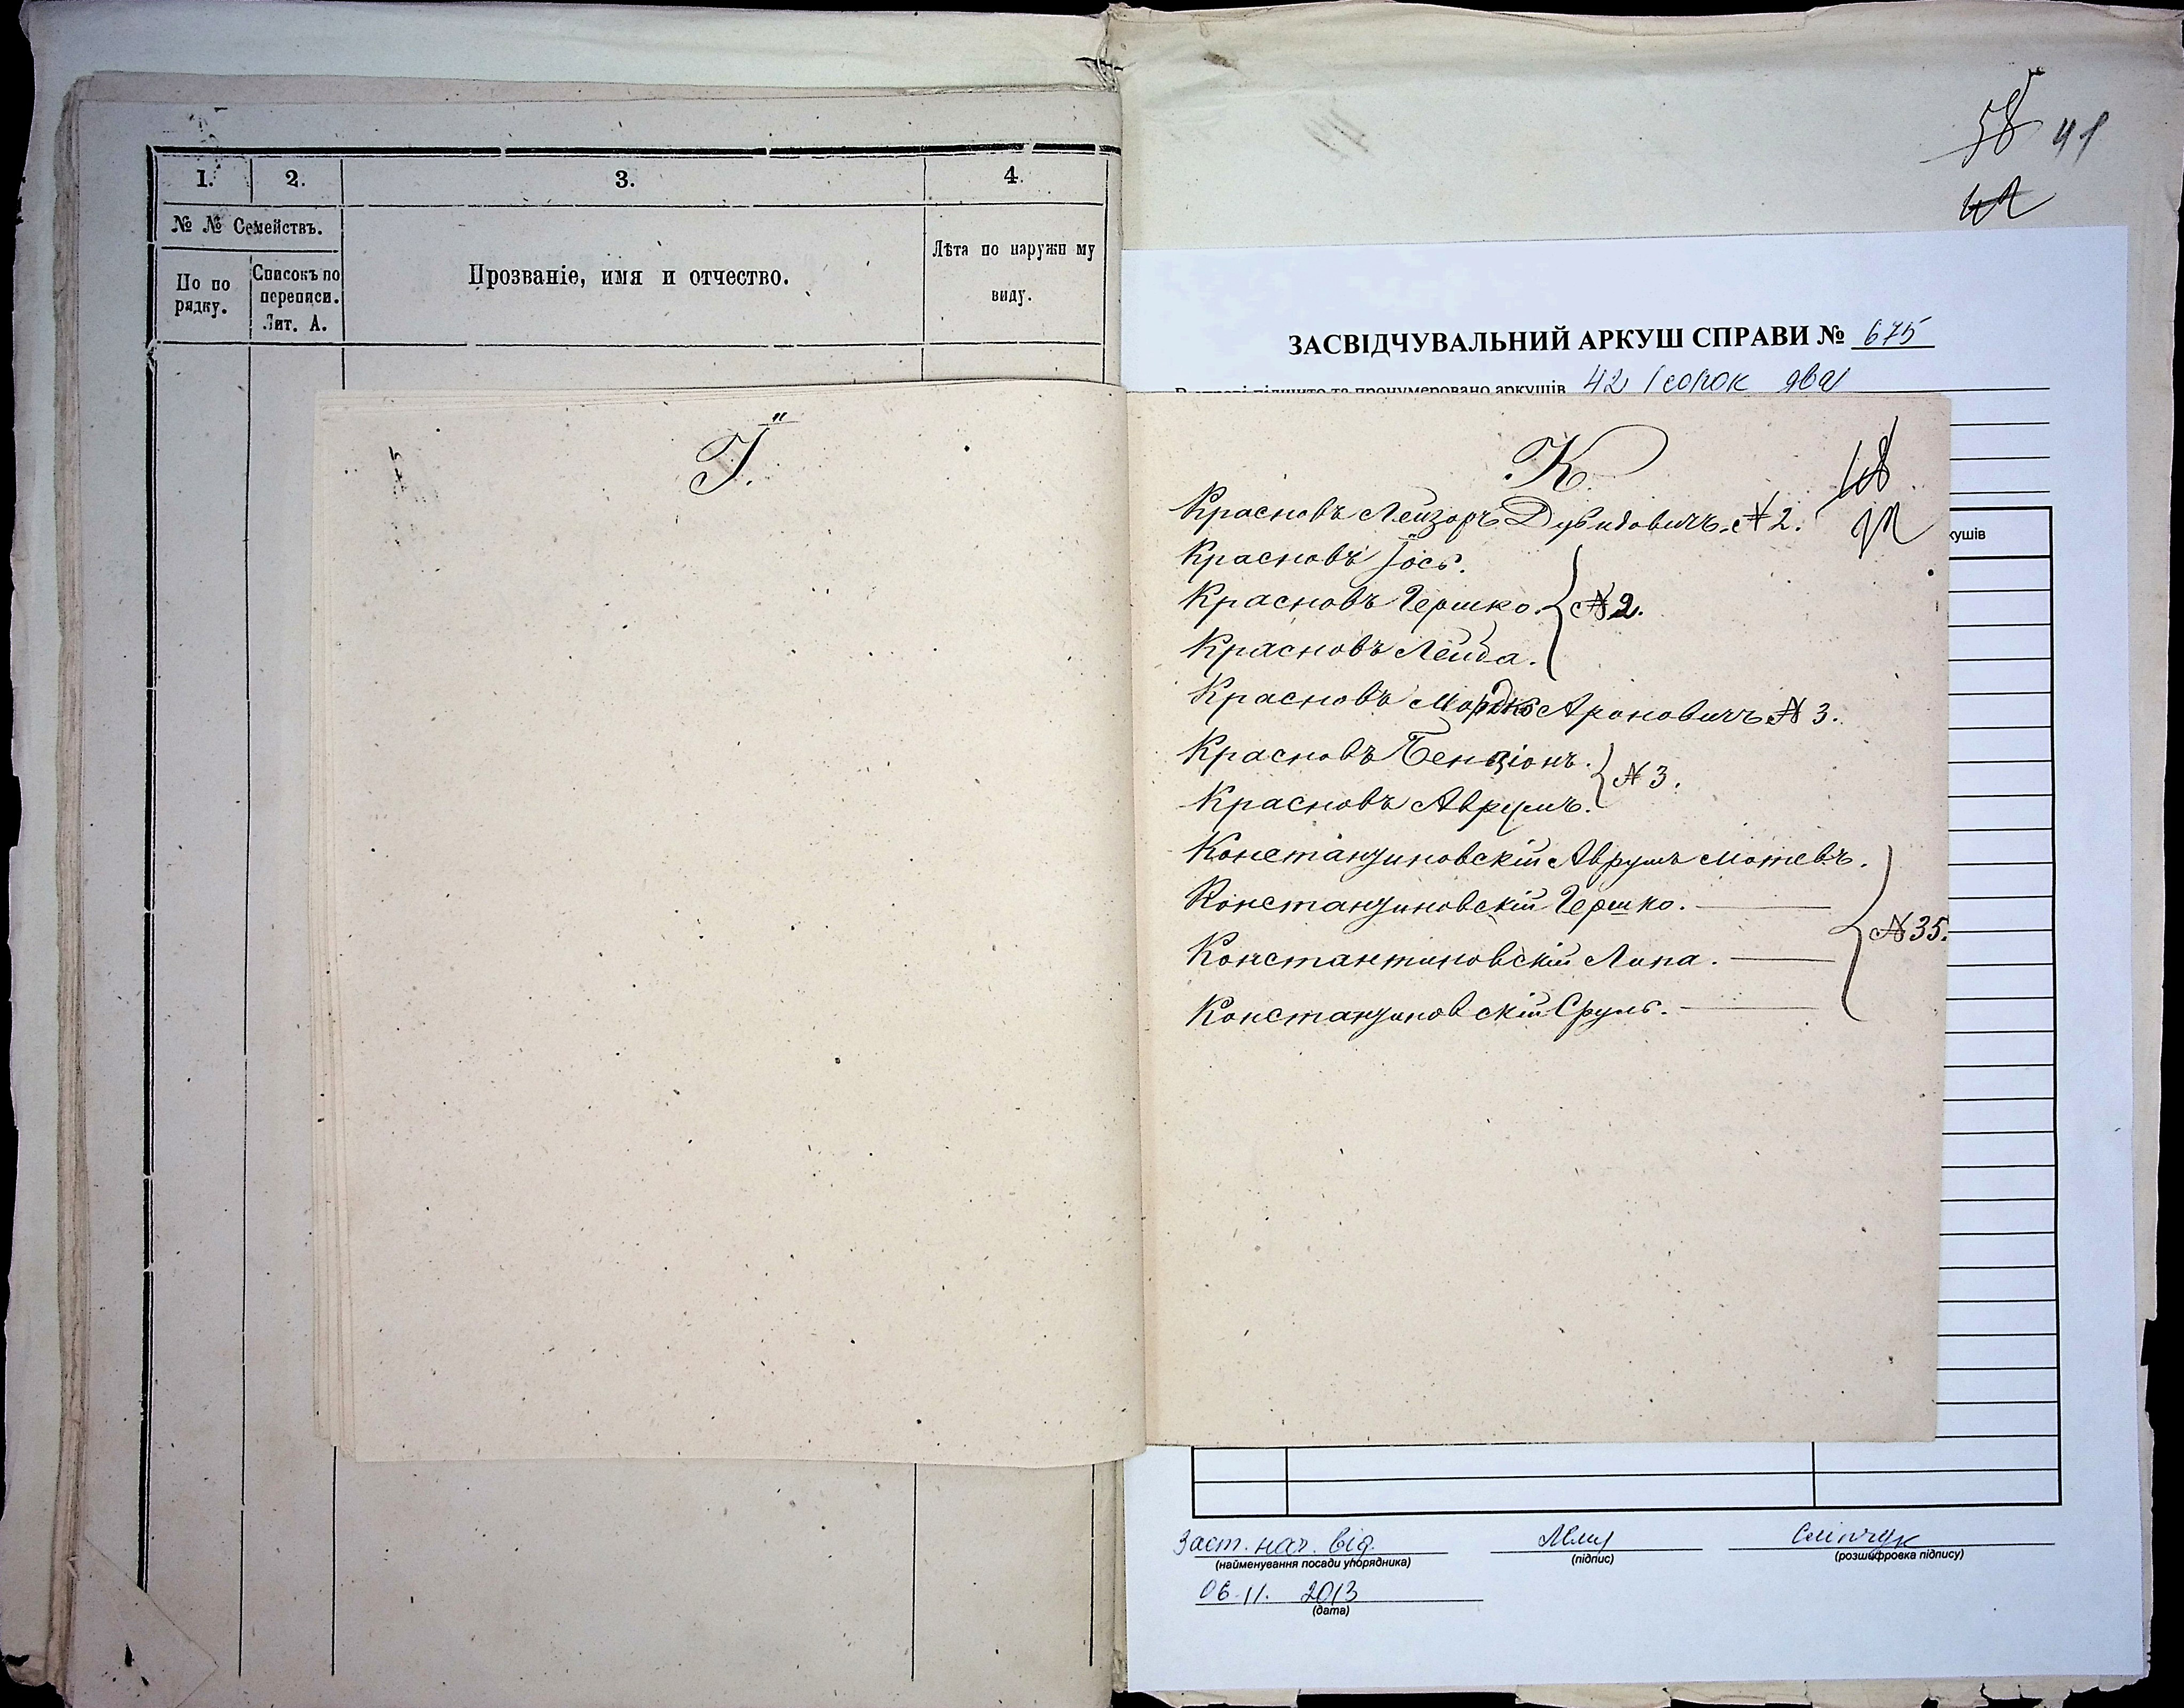 1.
2.
3.
4.
№ № Семействъ.
По по
рядку.
Списокъ по
переписи.
Лит. А.
Прозваніе, имя и отчество.
Лѣта по наружн му
виду.
Ї.
58 41
42
ЗАСВІДЧУВАЛЬНИЙ АРКУШ СПРАВИ № 675
підшито та пронумеровано аркушів 42 (сорок два)
кушів
К.
Красновъ Лейзоръ Дувидовичъ. № 2.
Красновъ Іось.
Красновъ Гершко. № 2.
Красновъ Лейба.
Красновъ Мордко Ароновичъ № 3.
Красновъ Бенціонъ. № 3.
Красновъ Аврумъ.
Константиновскій Аврумъ Мотевъ.
Константиновскій Гершко.
№ 35.
Константиновскій Липа.
Константиновскій Сруль.
Заст. нач. від.
(найменування посади упорядника)
(підпис)
Сліпчук
(розшифровка підпису)
06.11. 2013
(дата)